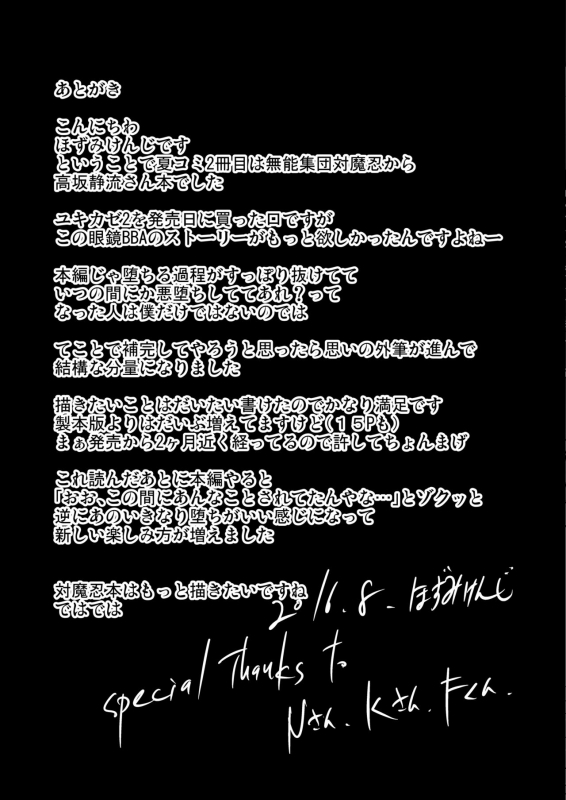 あとがき
こんにちわ
ほずみけんじです
ということで夏コミ2冊目は無能集団対魔忍から
高坂静流さん本でした
ユキカゼ2を発売日に買った口ですが
この眼鏡BBAのストーリーがもっと欲しかったんですよねー
本編じゃ堕ちる過程がすっぽり抜けてて
いつの間にか悪堕ちしててあれ？って
なった人は僕だけではないのでは
てことで補完してやろうと思ったら思いの外筆が進んで
結構な分量になりました
描きたいことはだいたい書けたのでかなり満足です
製本版よりはだいぶ増えてますけど(１５Pも)
まぁ発売から2ヶ月近く経ってるので許してちょんまげ
これ読んだあとに本編やると
「おお、この間にあんなことされてたんやな…」とゾクッと
逆にあのいきなり堕ちがいい感じになって
新しい楽しみ方が増えました
対魔忍本はもっと描きたいですね
ではでは
2016.8. ほずみけんじ
special Thanks to
Nさん. Kさん. Fくん.